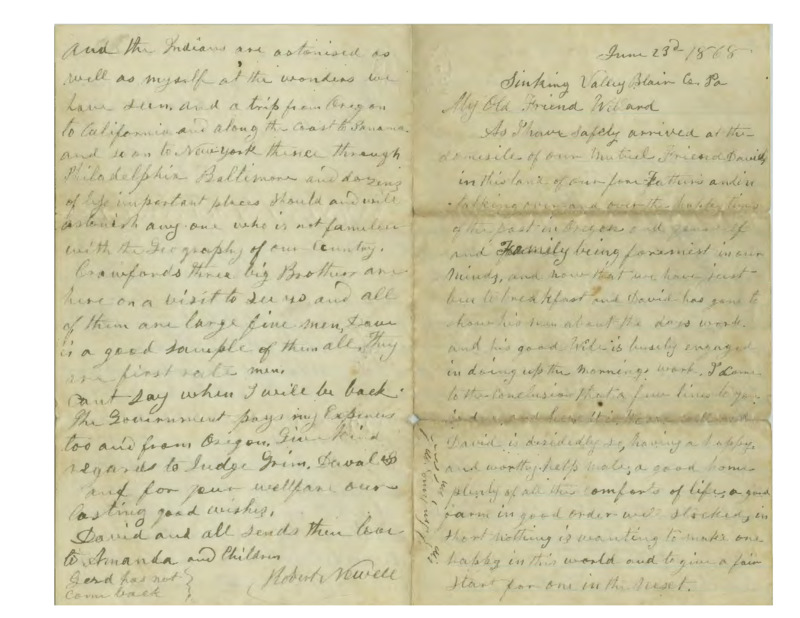 June 23d 1868
Sinking Valley Blair Co. Pa
My Old Friend Wiband
As I have Safely arrived at the
domesile of our Mutuel Friend Davids
in this land of our fore Fathers and in
talking over and over the happy times
of the past in Oregon and yourself
and Famely being foremost in our
Minds, and now that we have just
been to breakfast and David has gone to
show his men about the days work.
and his good Wife is busily engaged
in doing up the mornings work. I Came
to the Conclusion that a few lines to you
David is disidedly so, having a happy,
and worthy help mate, a good home
plenty of all the comforts of life, a good
farm in good order well stocked, in
short nothing is wanting to make one
happy in this world and to give a fair
start for one in the next.
and the Indians are astonised as
well as myself at the wonders we
have seen and a trip from Oregon
to California and along the Coast to Panama
and so on to New York thince through
Philadelphia Baltimore and
of less important places Should and will
astonish any one who is not familier
with the Geography of our Country.
Crawfords three big Brothers are
here on a visit to see us and all
of them are large fine men, Dave
is a good sample of them all. They
are first rate men.
Cant say when I will be back
The Government pays my Expences
too and from Oregon. Give Kind
regards to Judge Grim,
and for your wellfare our
lasting good wishes.
David and all sends their love
to Amanda and Children
has not
come back
Robert Newell